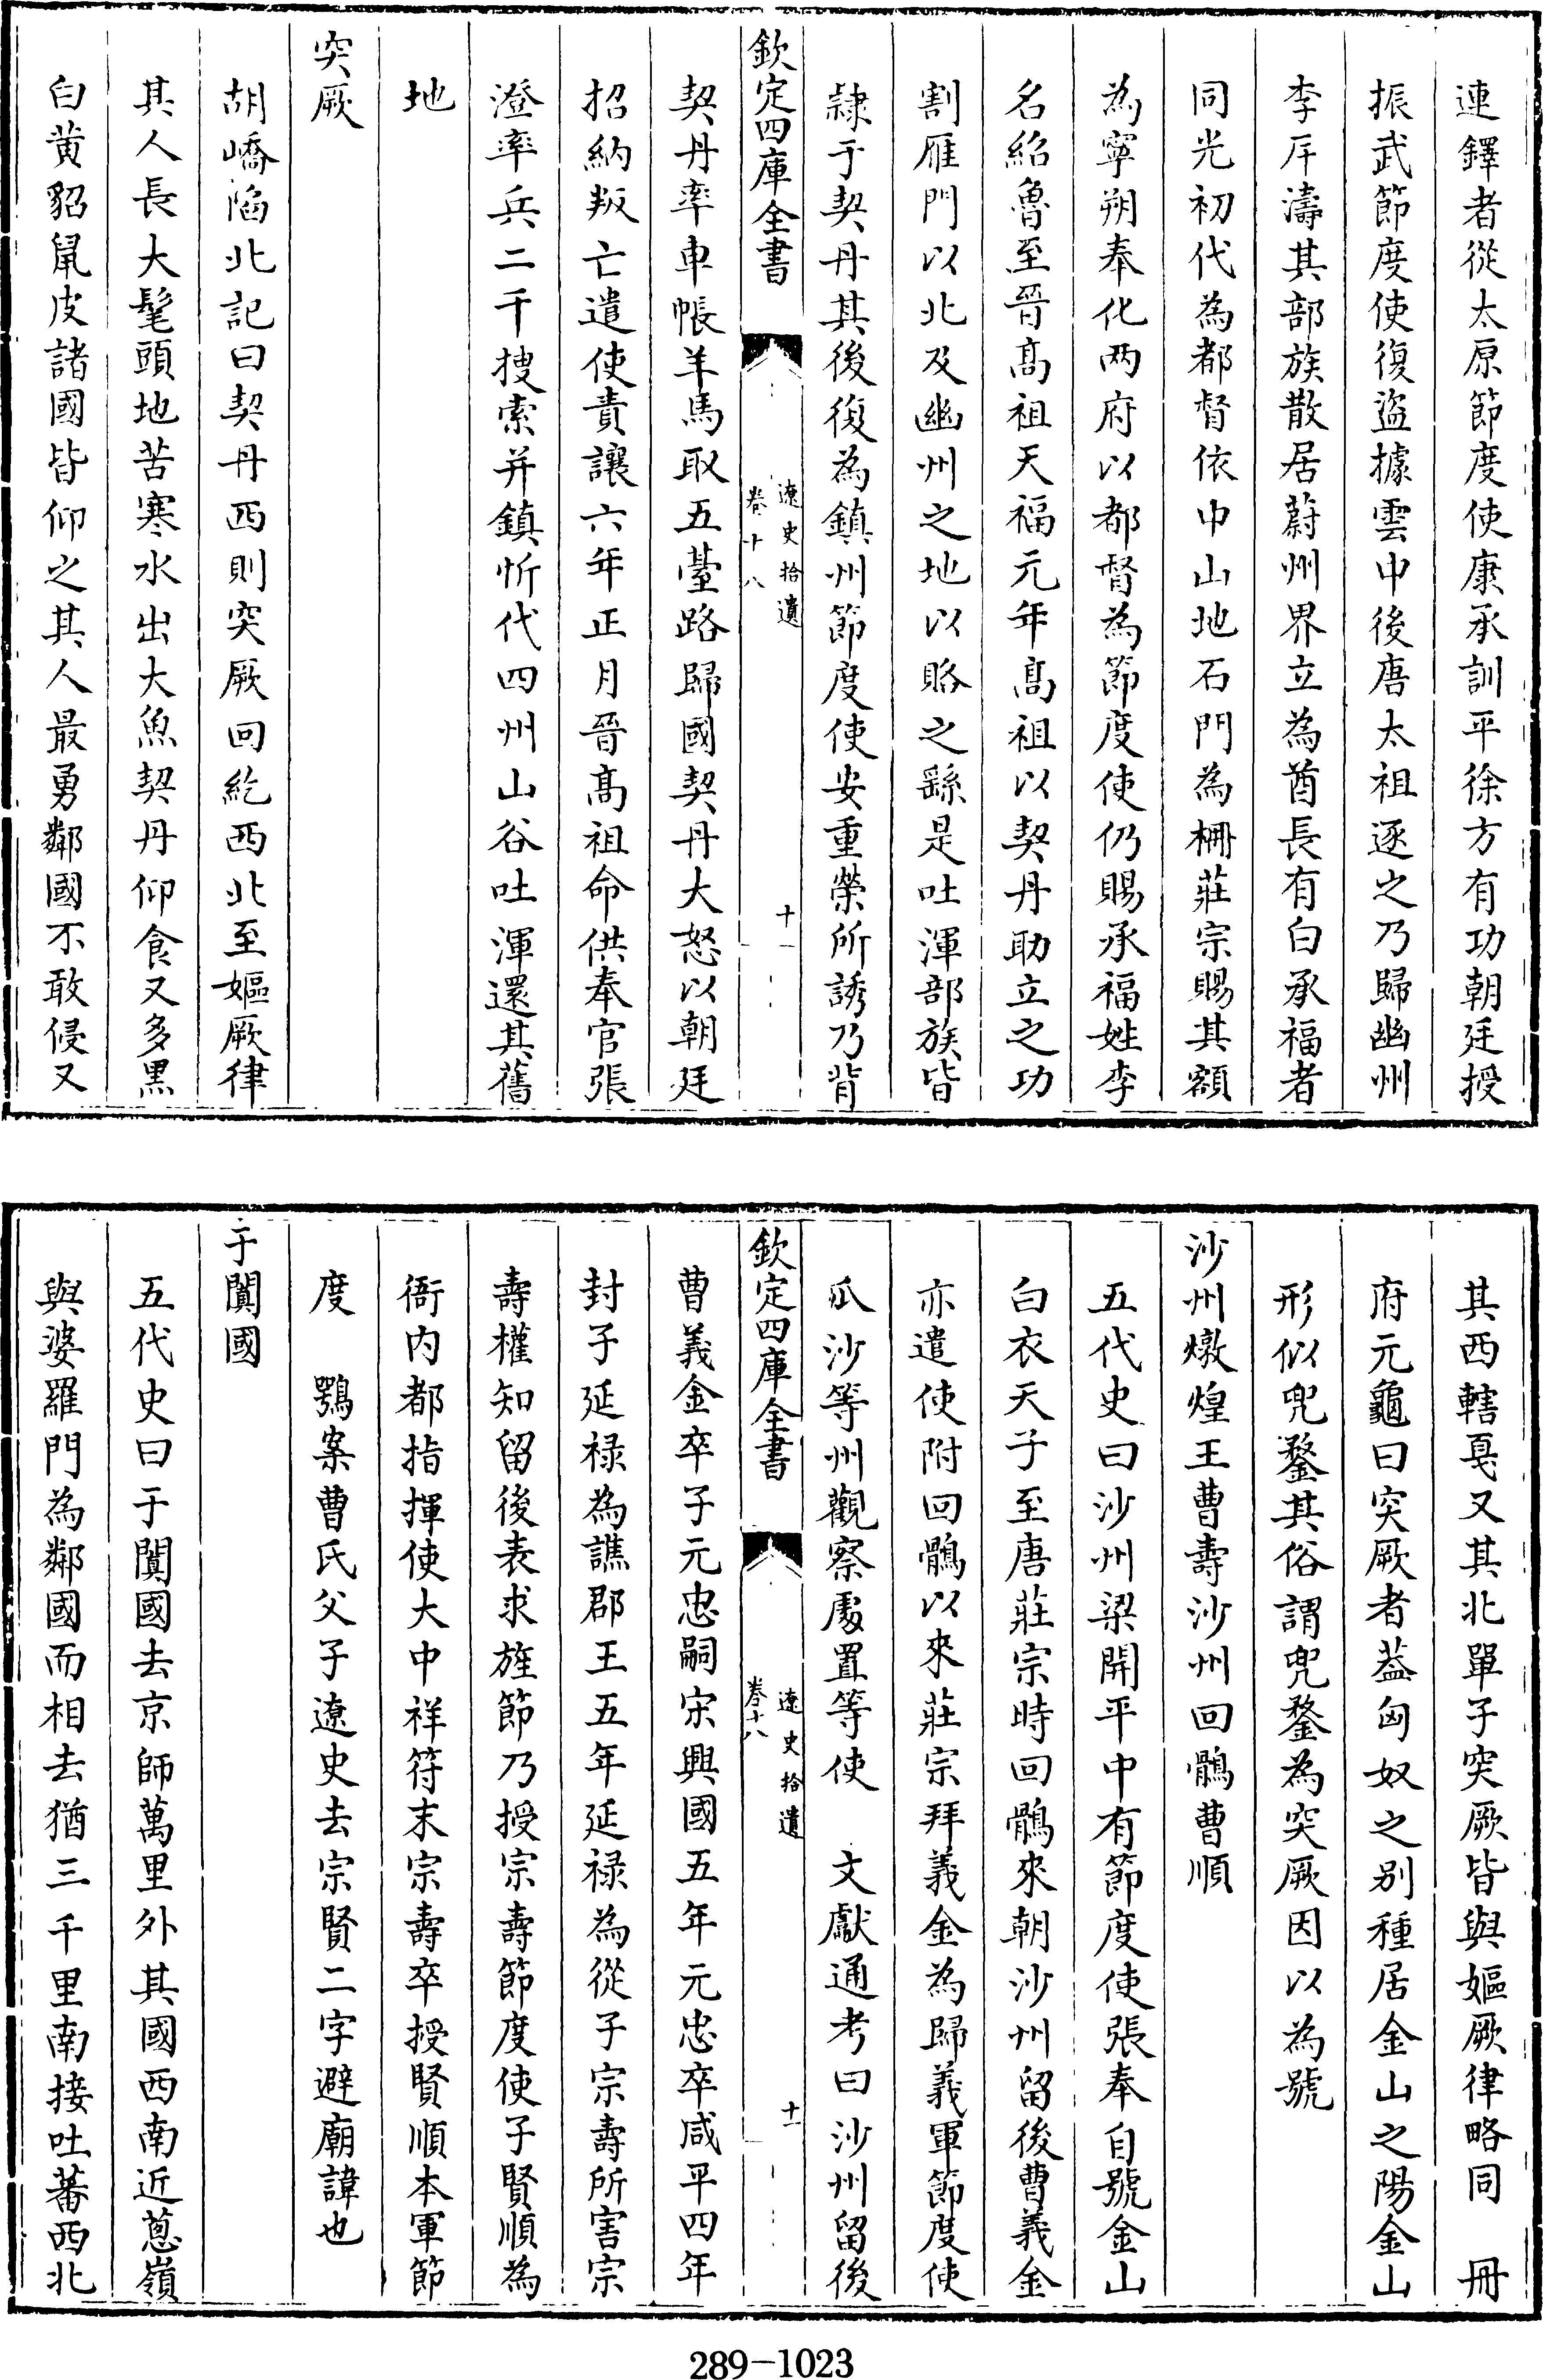 連鐸者從太原節度使康承訓平徐方有功朝廷授
振武節度使復盜據雲中後唐太祖逐之乃歸幽州
李厈濤其部族散居蔚州界立為酋長有白承福者
同光初代為都督依中山地石門為柵莊宗賜其額
為寧朔奉化兩府以都督為節度使仍賜承福姓李
名紹魯至晉髙祖天福元年髙祖以契丹助立之功
割雁門以北及幽州之地以賂之繇是吐渾部族皆
隷于契丹其後復為鎮州節度使安重榮所誘乃背
欽定四庫全書
遼史拾遺
卷十八
十一
契丹率車帳羊馬取五臺路歸國契丹大怒以朝廷
招納叛亡遣使責讓六年正月晉髙祖命供奉官張
澄率兵二千搜索并鎮忻代四州山谷吐渾還其舊
地
突厥
胡嶠陷北記曰契丹西則突厥回紇西北至嫗厥律
其人長大髦頭地苦寒水出大魚契丹仰食又多黒
白黄貂鼠皮諸國皆仰之其人最勇鄰國不敢侵又
其西轄戛又其北單于突厥皆與嫗厥律略同　冊
府元龜曰突厥者葢匈奴之别種居金山之陽金山
形似兜鍪其俗謂兜鍪為突厥因以為號
沙州燉煌王曹壽沙州回鶻曹順
五代史曰沙州梁開平中有節度使張奉自號金山
白衣天子至唐莊宗時回鶻來朝沙州留後曹義金
亦遣使附回鶻以來莊宗拜義金為歸義軍節度使
瓜沙等州觀察處置等使　文獻通考曰沙州留後
欽定四庫全書
遼史拾遺
卷十八
十一
曹義金卒子元忠嗣宋興國五年元忠卒咸平四年
封子延禄為譙郡王五年延禄為從子宗壽所害宗
壽權知留後表求旌節乃授宗壽節度使子賢順為
衙内都指揮使大中祥符末宗壽卒授賢順本軍節
度　鶚案曹氏父子遼史去宗賢二字避廟諱也
于闐國
五代史曰于闐國去京師萬里外其國西南近葱嶺
與婆羅門為鄰國而相去猶三千里南接吐蕃西北
289-1023